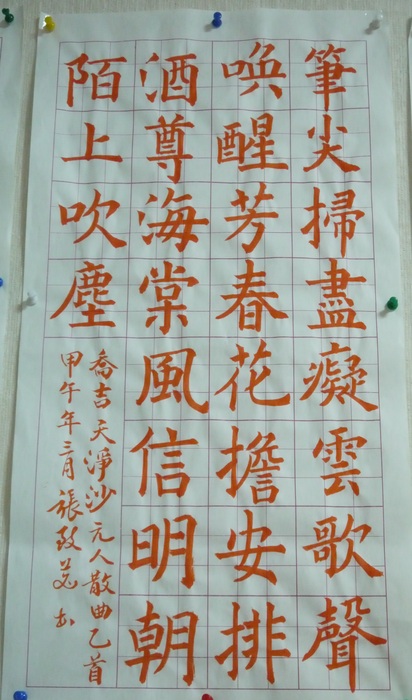 筆尖掃盡癡雲歌聲
喚醒芳春花擔安排
酒尊海棠風信明朝
陌上吹塵
喬吉天淨沙元人散曲乙首
甲午年三月張致